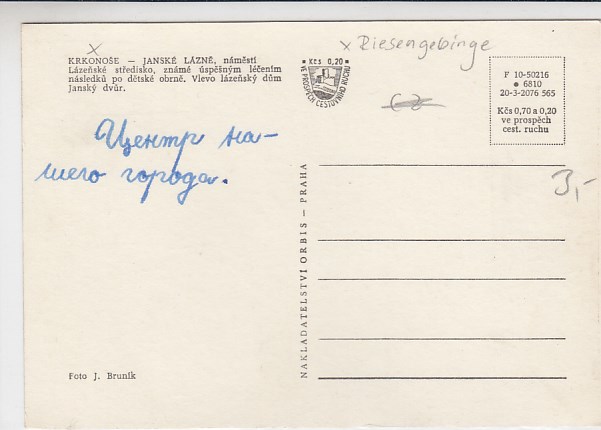 x
x Riesengebirge
KRKONOŠE — JANSKÉ LÁZNĚ, náměstí
Lázeňské středisko, známé úspěšným léčením
následků po dětské obrně. Vlevo lázeňský dům
Janský dvůr.
• Kčs 0,20 •
VE PROSPĚCH CESTOVNÍHO RUCHU
F 10-50216
• 6810
20-3-2076 565
Kčs 0,70 a 0,20
ve prospěch
cest. ruchu
Центр на-
шего города.
3,-
NAKLADATELSTVÍ ORBIS — PRAHA
Foto J. Bruník